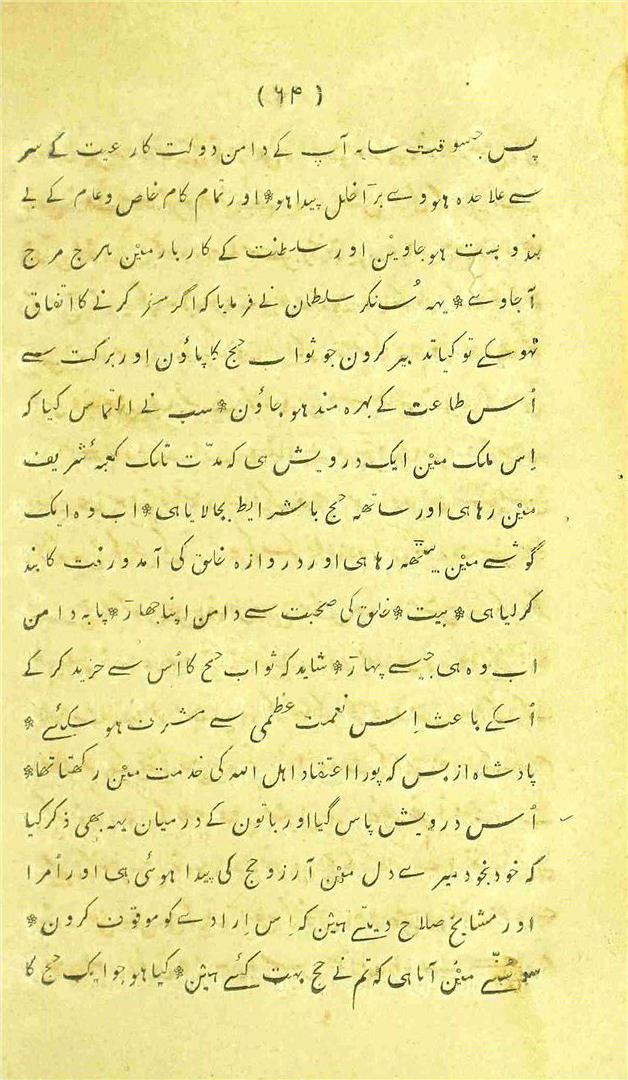 (۶۴)
پس جسوقت سایہ آپ کے دامن دولت کا رعیت کے سر
سے علاحدہ ہووے بڑا خلل پیدا ہو * اور تمام کام خاص و عام کے بے
بند و بست ہو جاوین اور سلطنت کے کاربار مین ہرج مرج
آجاوے * یہہ سُنکر سلطان نے فرمایا کہ اگر سفر کرنے کا اتفاق
نہوسکے تو کیا تدبیر کرون جو ثواب حج کا پاؤن اور برکت سے
اُس طاعت کے بہرہ مند ہو جاؤن * سب نے التماس کیا کہ
اِس ملک مین ایک درویش ہی کہ مدّت تلک کعبۂ شریف
مین رہا ہی اور ساٹھہ حج باشرایط بجا لایا ہی * اب وہ ایک
گوشے مین بیٹھہ رہا ہی اور دروازہ خلق کی آمد و رفت کا بند
کرلیا ہی * بیت * خلق کی صحبت سے دامن اپنا جھاڑ * پابہ دامن
اب وہ ہی جیسے پہاڑ * شاید کہ ثواب حج کا اُس سے خرید کر کے
اُسکے باعث اِس نعمت عظمی سے مشرف ہو سکیئے *
پادشاہ ازبس کہ پورا اعتقاد اہل اللہ کی خدمت مین رکھتا تھا *
اُس درویش پاس گیا اور باتون کے درمیان یہہ بھی ذکر کیا
کہ خود بخود میرے دل مین آرزو حج کی پیدا ہوئی ہی اور اُمرا
اور مشایخ صلاح دیتے ہین کہ اِس اِرادے کو موقوف کرون *
سو سُننے مین آیا ہی کہ تم نے حج بہت کئے ہین * کیا ہو جو ایک حج کا